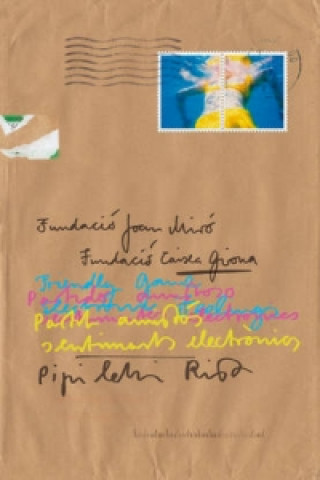 Fundació Joan Miró
Fundació Caixa Girona
Friendly Game
Partido amistoso
electronic feelings
Partit amistós
sentiments electrònics
Pipilotti Rist